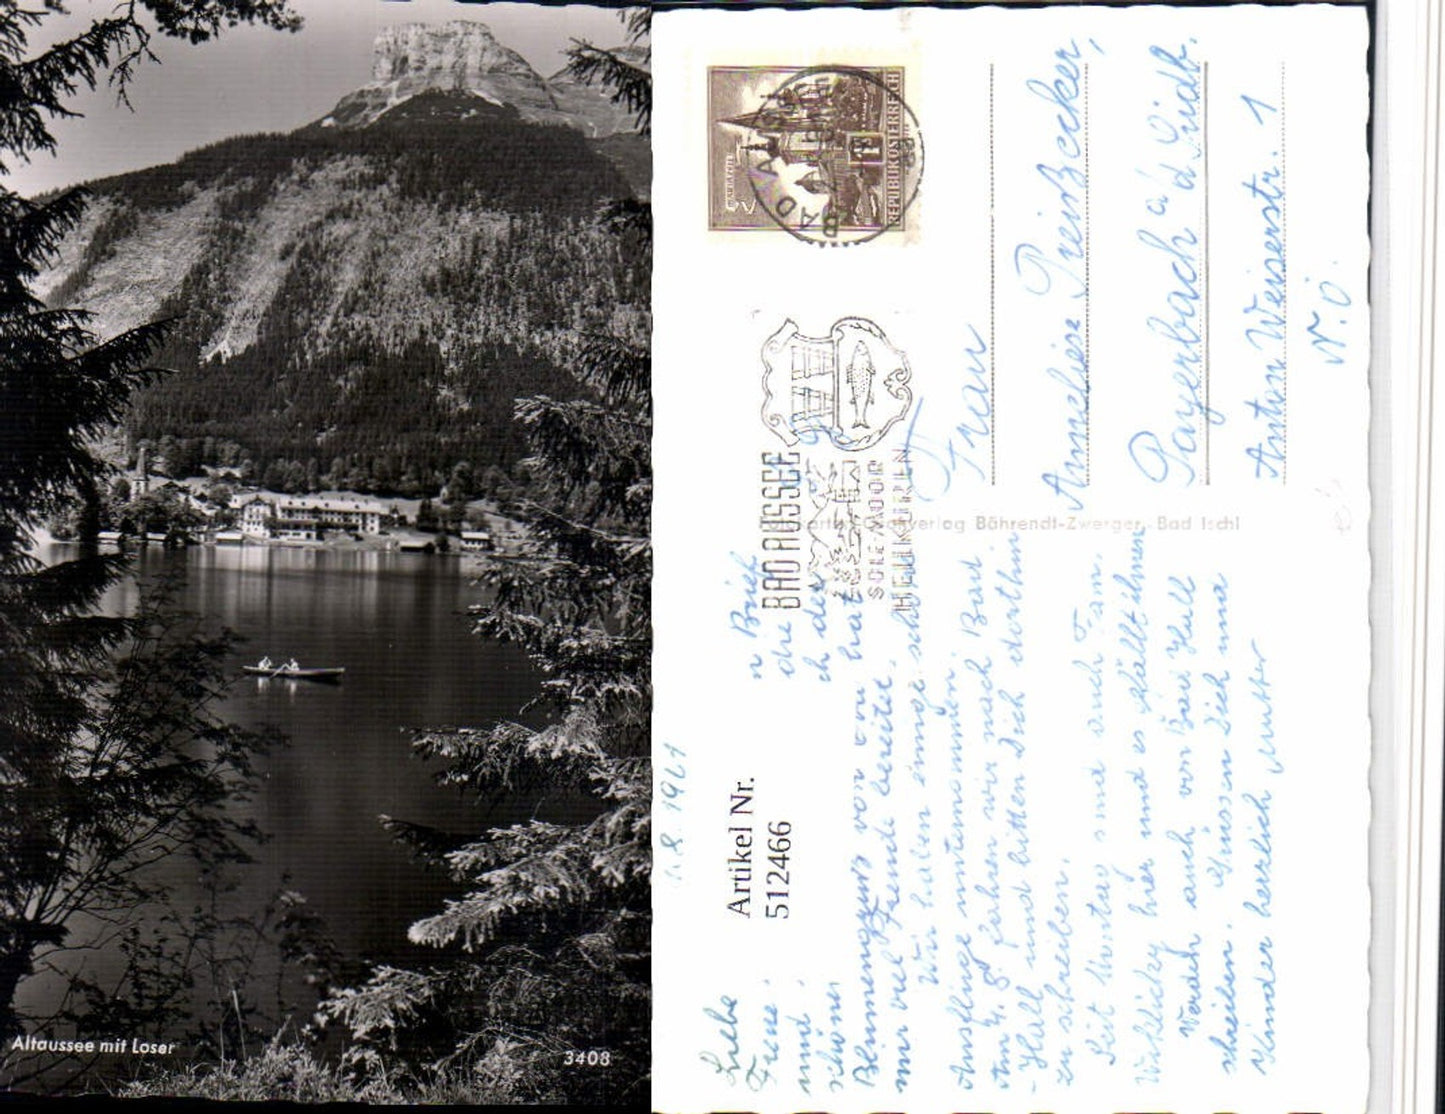 Altaussee mit Loser
3408
REPUBLIK ÖSTERREICH
BAD AUSSEE
SOLE-MOOR
HEILKUREN
Frau
Anneliese Preißecker,
Payerbach a/d Südb.
Anton Weiserstr. 1
N.Ö.
Bährendt-Zwerger, Bad Ischl
8. 1961
Artikel Nr.
512466
Liebe
Brief
und
schöner
hat
Blumengruß von
mir viel Freude bereitet.
Wir haben einige schöne
Ausflüge unternommen.
Am 4. 8. fahren wir nach Bad
- Hall und bitten Dich dorthin
zu schreiben.
Seit Montag sind auch Fam.
hier und es gefällt ihnen
Werde auch von Bad Hall
schreiben. Grüssen Dich und
Kinder herzlich Mutter